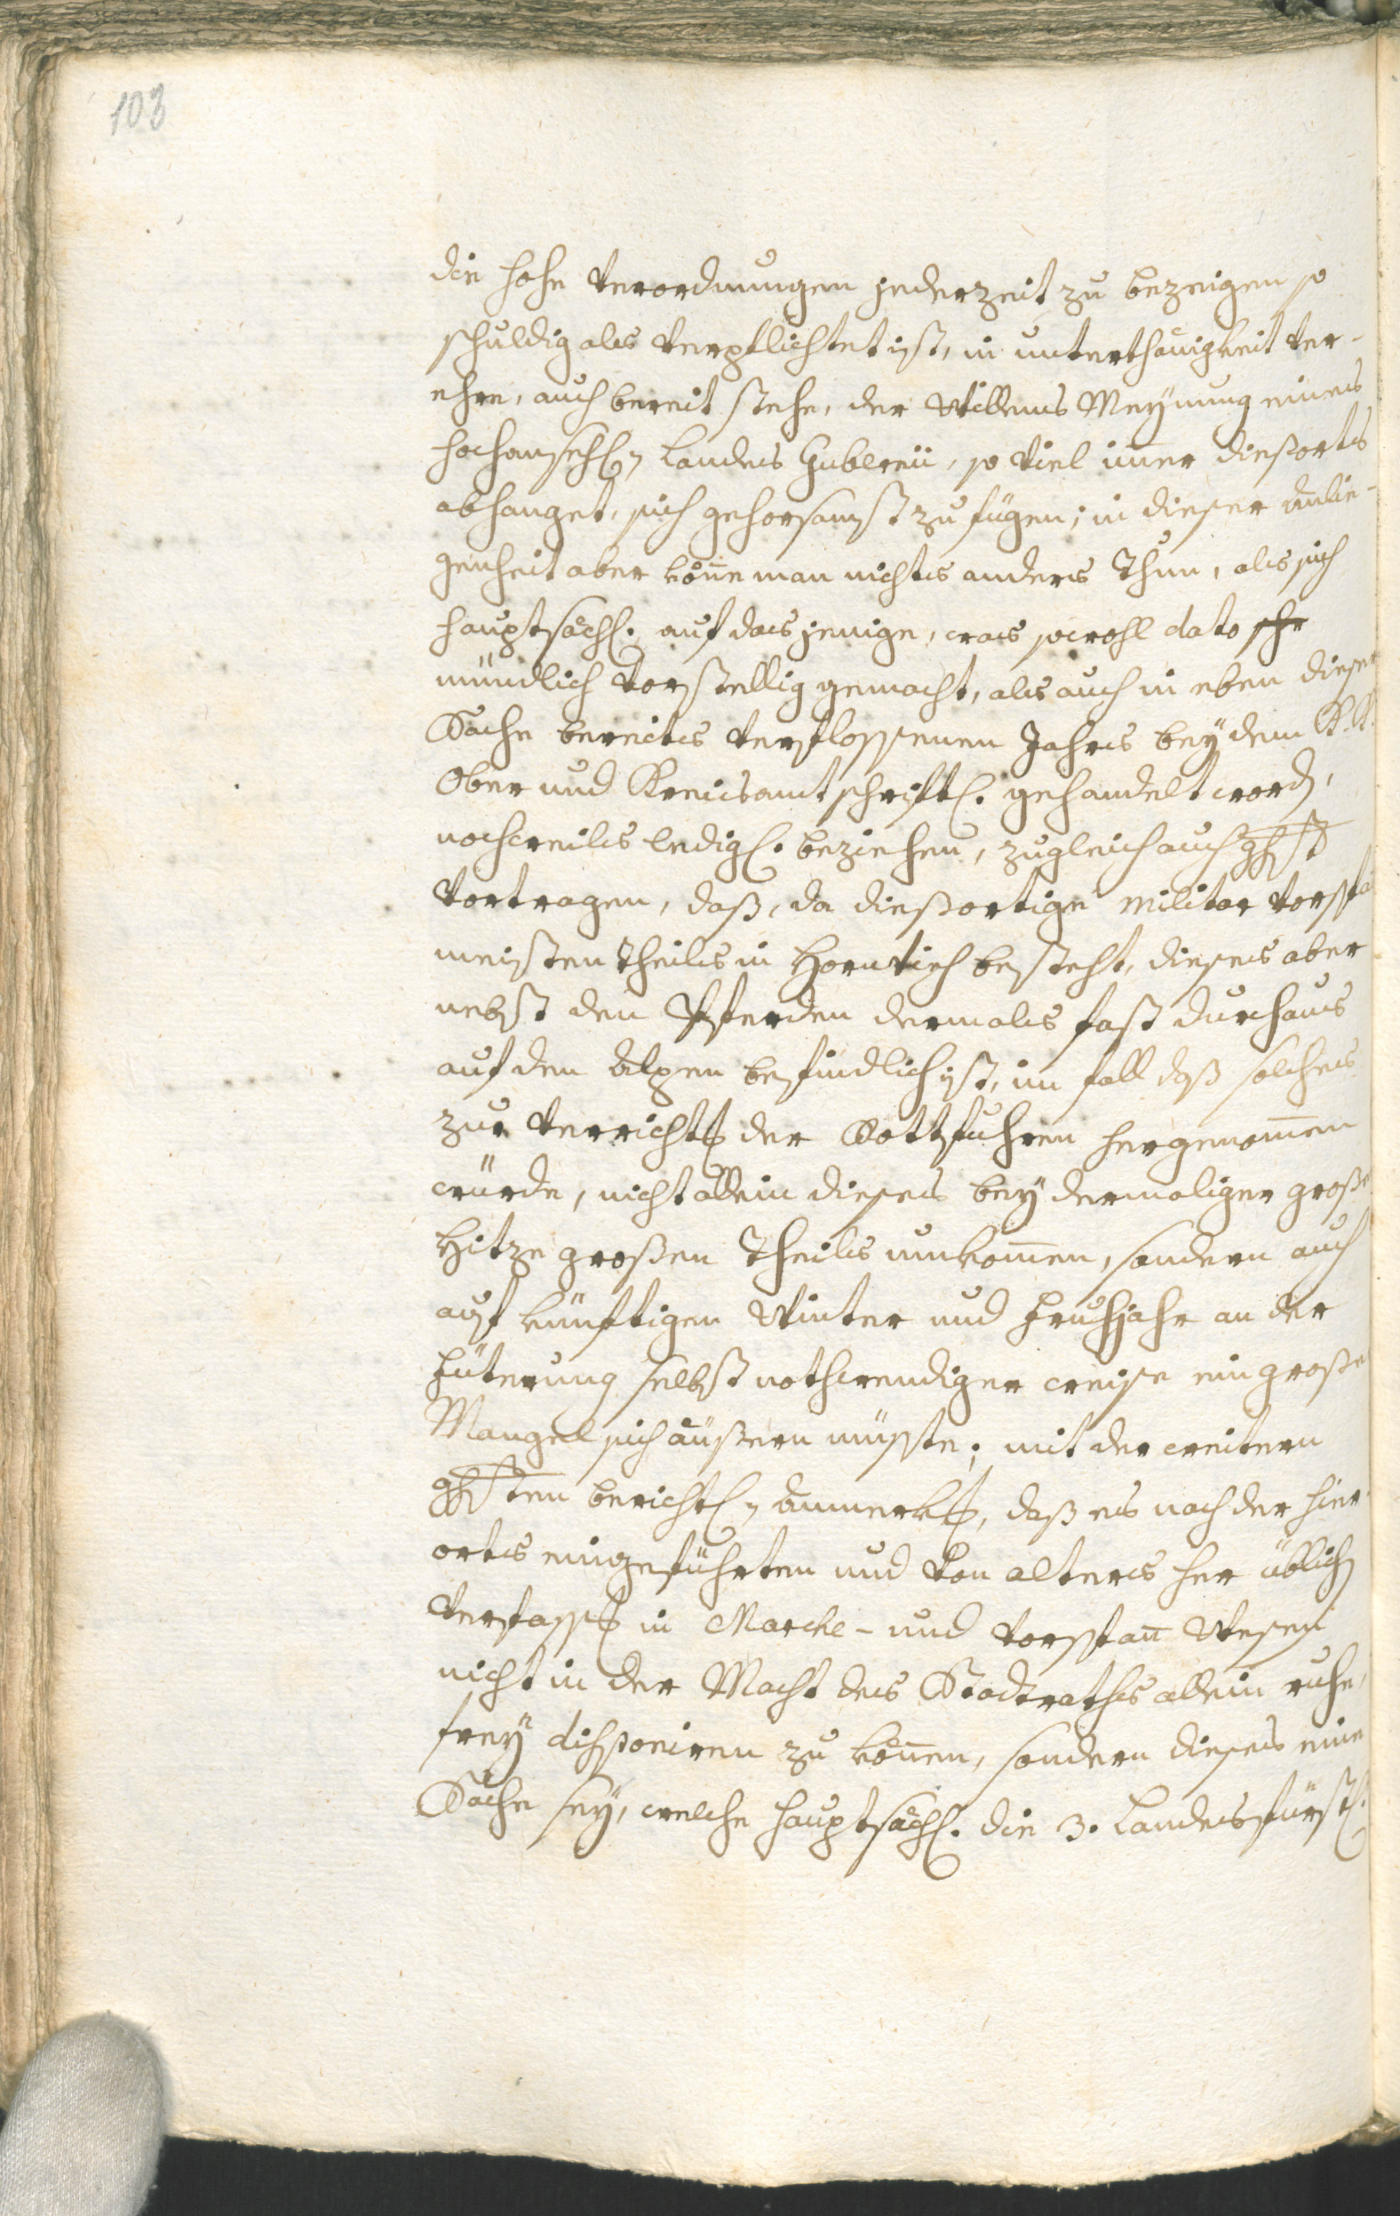 103
die hohe Verordnungen jederzeit zu bezeigen so
schuldig als verpflichtet ist, in unterthänigkeit ver-
ehre, auch bereit stehe, der Willens Meynung eines
hochansehl: Landes Gubernii, so viel im̅er diesorts
abhanget, sich gehorsamst zu fügen; in dieser anlie-
genheit aber kön̅e man nichts anders thun, als sich
hauptsächl. auf das jenige, was sowohl dato
mündlich vorstellig gemacht, als auch in eben dieser
Sache bereits verflossenen Jahrs bey dem K. K.
Ober und Kreisamt schriftl. gehandelt word,
nochweils ledigl. beziehen, zugleich auch ghst
vortragen, daß, da diesortige Militar Vorspa
meisten theils in Hornvieh besteht, dieses aber
nebst den Pferden dermals fast durchaus
auf den Alpen befindlich ist, im fall daß solches
zur verricht der Rottfuhren hergenom̅en
würde, nicht allein dieses bey dermaliger große
Hitze großen theils umkom̅en, sondern auch
auf künftigen Winter und Fruhjahr an der
Füterung selbst nothwendiger weise ein große
Mangel sich äußern müsste; mit der weitern
ghsten berichtl: Anmerk, daß es nach der hier-
orts eingeführten und von alters her üblich
Verfass in Marche- und Vorspan̅ Wesen
nicht in der Macht des Stadtraths allein ruhe,
frey disponiren zu kön̅en, sondern dieses eine
Sache sey, welche hauptsächl. die 3. Landesfürstl.